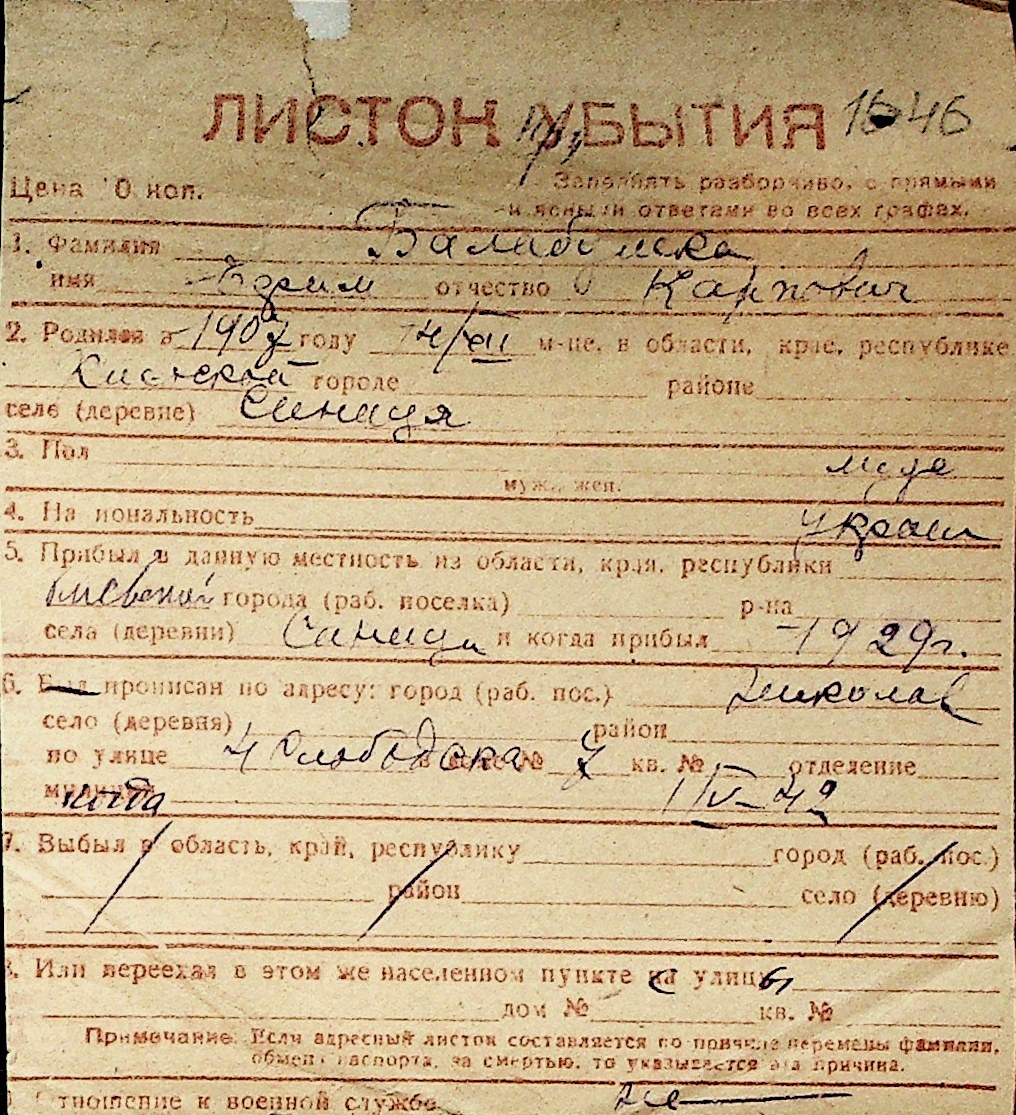 ЛИСТОК УБЫТИЯ 1646
Цена 10 коп. Заполнять разборчиво, с прямыми
и ясными ответами во всех графах.
1. Фамилия Балабушка
имя Ефрим отчество Карпович
2. Родился в 1907 году 14/XII м-це, в области, крае, республике
Киевской городе районе
селе (деревне) Синица
3. Пол муж
муж., жен.
4. Национальность украин
5. Прибыл в данную местность из области, края, республики
Киевской города (раб. поселка) р-на
села (деревни) Синица и когда прибыл 1929 г.
6. Был прописан по адресу: город (раб. пос.) Николаев
село (деревня) район
по улице 4 Слободска в доме № 7 кв. № отделение
милиции когда 1 IV-42
7. Выбыл в область, край, республику город (раб. пос.)
район село (деревню)
8. Или переехал в этом же населенном пункте с улицы
дом № кв. №
Примечание: Если адресный листок составляется по причине перемены фамилии,
обмена паспорта, за смертью, то указывается эта причина.
Отношение к военной службе не